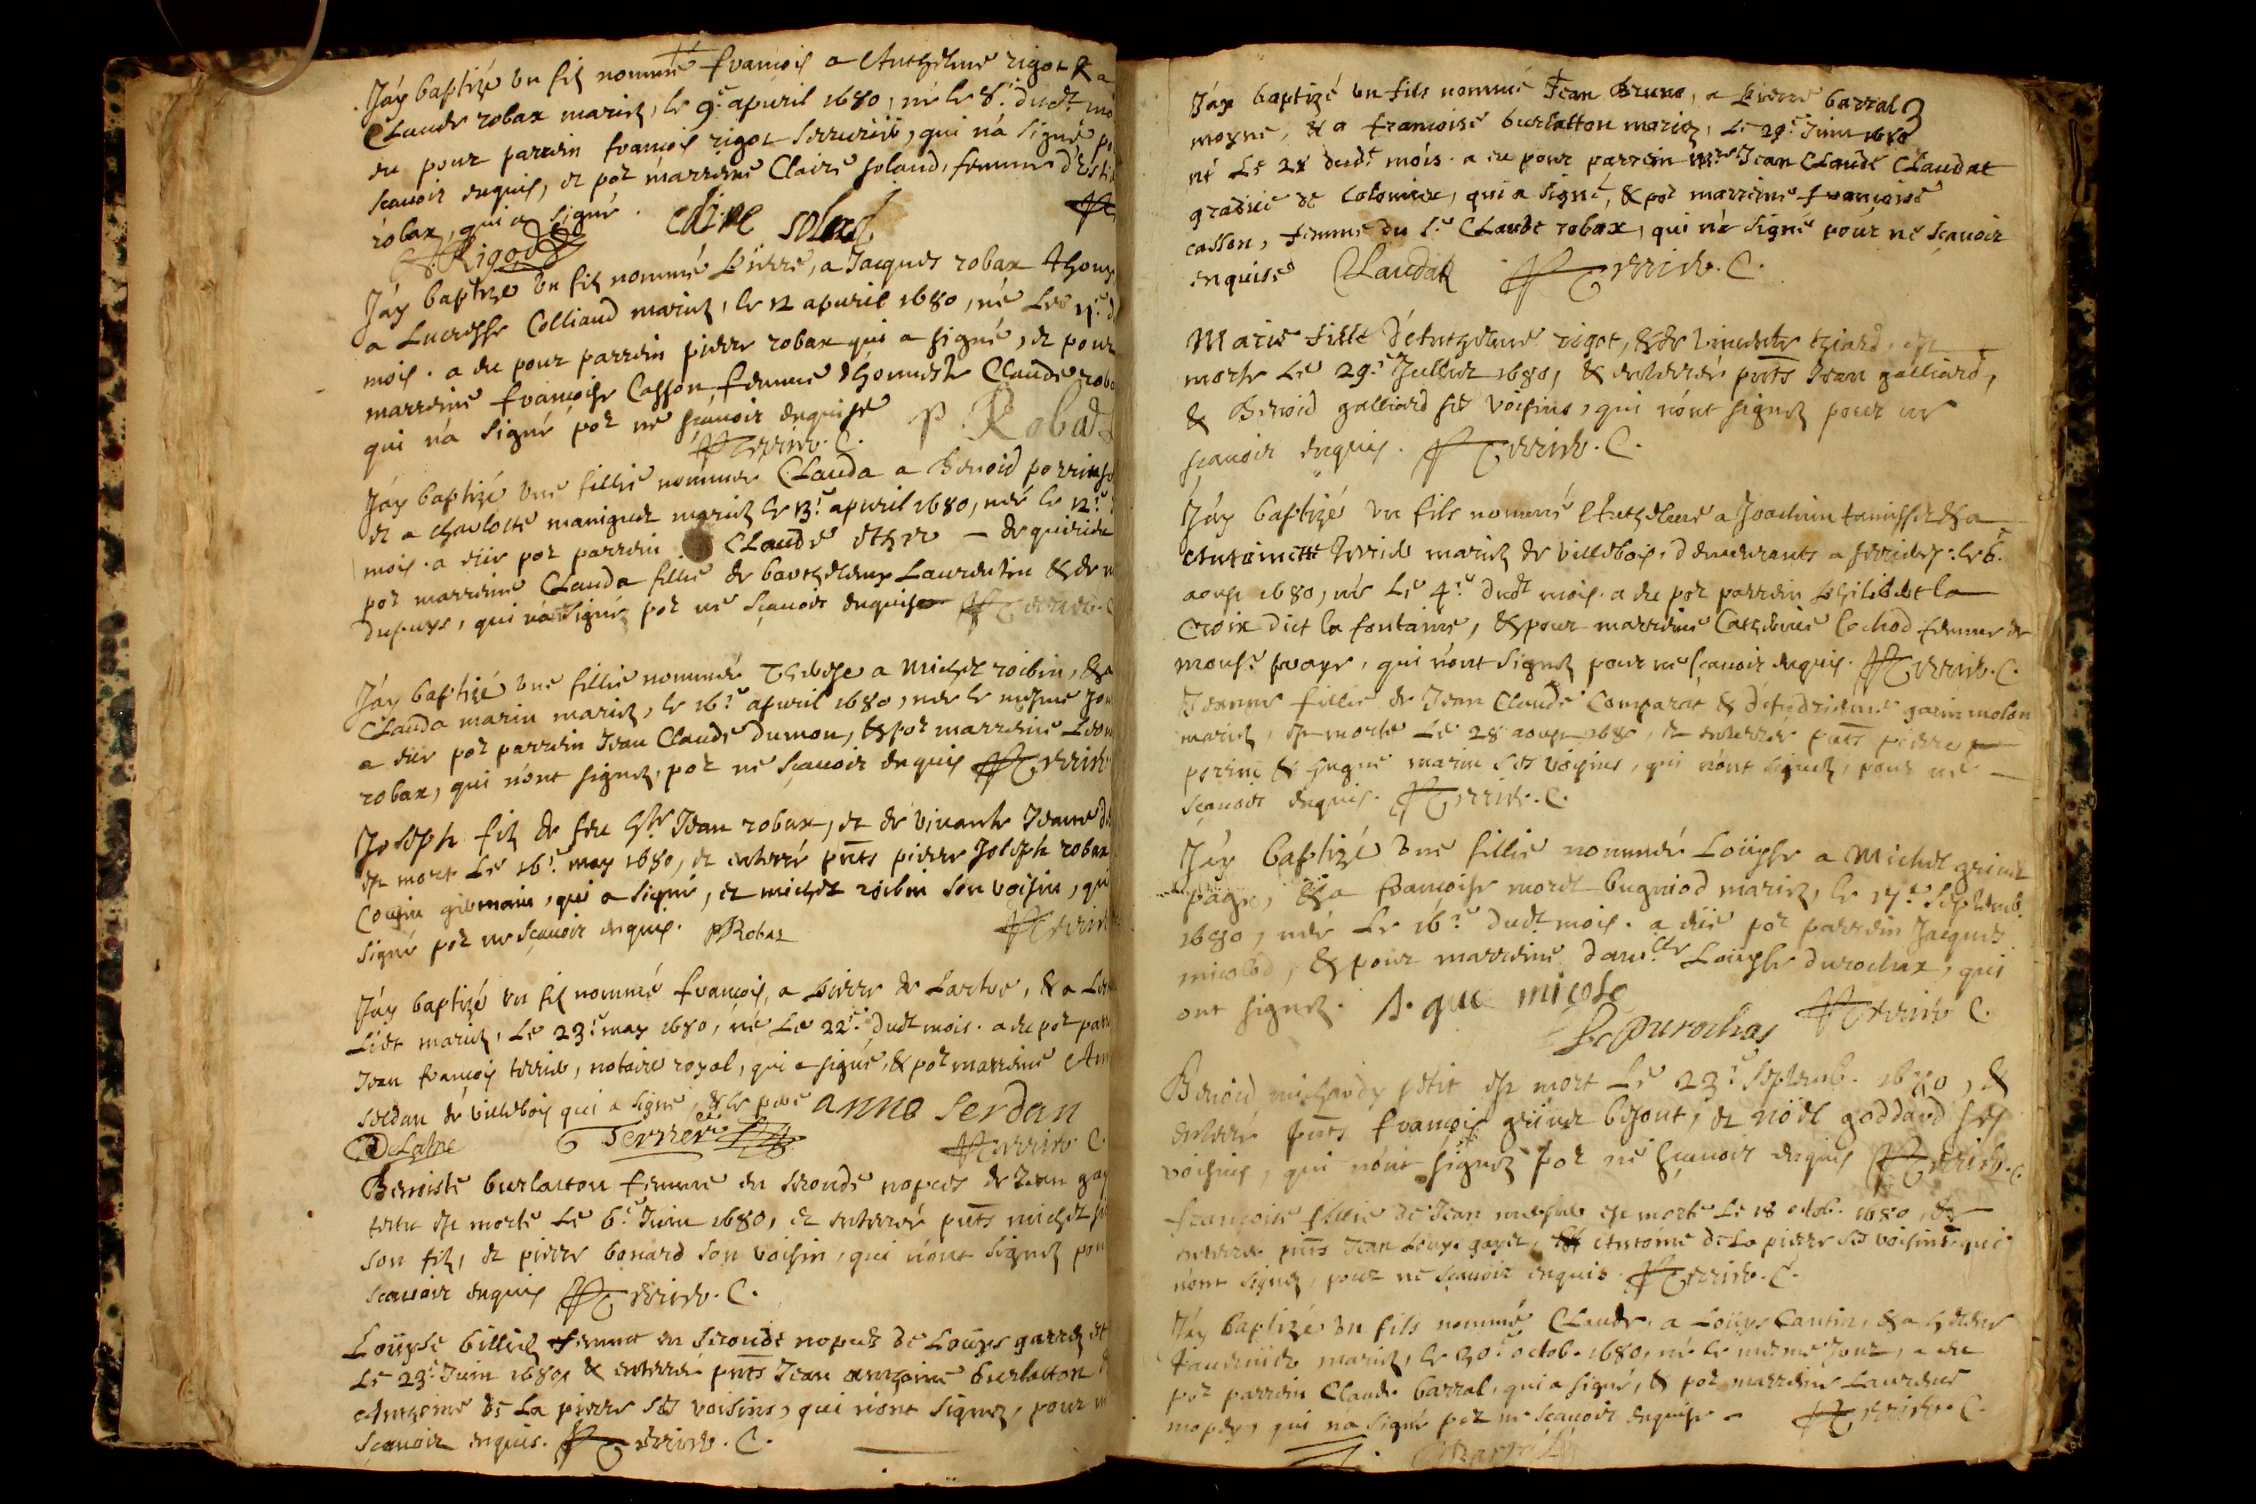 Jáy baptizé un filz nommé françois a Anthelme rigot & a
Claude robax mariez, le 9.e apuril 1680, né le 8.e dudt mo
eu pour parrein françois rigot serrurier, qui ná signé po
scauoir enquis, et por marreine Claire soland, femme d'
robax, qui a signé. claire soland
Rigod
Jáy baptizé un filz nommé Pierre, a Jacques robax &
a Lucresse Colliaud mariez, le 12 apuril 1680, né le 11.e d
mois. a eu pour parrein pierre robax qui a signé, et pour
marreine françoise Casson femme d'honneste Claude roba
qui ná signé por ne scauoir enquise P. Robax
Terrier. C.
Jáy baptizé une fillie nommée Clauda a Benoid perrin
et a charlotte maniguet mariez le 13.e apuril 1680, née le 12.e
mois. a eüe por parrein Claude
por marreine Clauda fillie de barthelemy Laurentin & de
dupuys, qui ná signé por ne scauoir enquise Terrier. C
Jáy baptizé une fillie nommée Therese a Michel roibin, & a
Clauda marin mariez, le 16.e apuril 1680, née le mesme jou
a eüe por parrein Jean Claude dumon, & por marreine Leon
robax, qui nónt signez, por ne scauoir enquis Terrier
Joseph filz de feu Jean robax, et de viuante Jeanne d
est mort Le 16.e may 1680, et enterré pnts pierre Joseph robax
Cousin germain, qui a signé, et michel roibin son voisin, qui
signé por ne scauoir enquis. P Robax Terrier
Jáy baptizé un filz nommé françois, a Pierre de Lastre, & a Lou
Liet mariez, Le 23.e may 1680, né Le 22.e dudt mois. a eu por parr
Jean françois terrier, notaire royal, qui a signé, & por marreine Ann
serdan de villebois qui a signé, & le pere anne serdan
DeLastre Terrier Terrier C.
Benoiste burlatton femme en seconde nopces de Jean gay
est morte Le 6.e Juin 1680, et enterrée pnts michel
son filz, et pierre bonard son voisin, qui nónt signez pou
scauoir enquis Terrier. C.
Loüyse billiez femme en seconde nopces de Loüys garrez
Le 23.e Juin 1680, & enterrée pnts Jean anthoine burlatton
Anthoine de La pierre ses voisins, qui nónt signez, pour n
Scauoir enquis. Terrier. C.
3
Jáy baptizé un fils nommé Jean Bruno, a Pierre barral
moyne, & a françoise burlatton mariez, Le 29.e Juin 1680
né Le 28 dudt mois. a eu pour parrein Jean Claude Claudat
gradué de Colomieu, qui a signé, & por marreine françoise
casson, femme du Sr Claude robax, qui ná signé pour ne scauoir
enquise Claudat Terrier. C.
Marie fille d'Anthelme rigot, & de Vincente thiard, est
morte Le 29.e Juillet 1680, & enterrée pnts Jean galliard,
& Benoid galliard ses voisins, qui nónt signez pour ne
scauoir enquis. Terrier. C.
Jáy baptizé un fils nommé Anthelme a Joachim & a
Anthoinette terrier mariez de villebois, demeurants a : le 6.e
aoust 1680, né Le 4.e dudt mois. a eu por parrein Philibert la
Croix dict la fontaine, & pour marreine Catherine Cochod femme de
, qui nónt signez pour ne scauoir enquis. Terrier. C.
Jeanne fillie de Jean Claude Comparat & d'
mariez, est morte Le 28 aoust 1680, et enterrée pnts pierre
perrin & hugue marin ses voisins, qui nónt signez, pour ne
scauoir enquis. Terrier. C.
Jáy baptizé une fillie nommée Loüyse a Michel grinet
page, & a françoise moret bugniod mariez, le 17.e septemb.
1680, née Le 16.e dudt mois. a eüe por parrein Jacques
micolod, & pour marreine damlle Loüyse durochax, qui
ont signez. Terrier C.
Durochas
Benoid michaudz petit est mort Le 23.e septemb. 1680, &
enterré pnts françois grinet bezont, et noël goddard ses
voisins, qui nónt signez por ne scauoir enquis Terrier. C.
françoise fillie de Jean est morte Le 18 octob. 1680, &
enterrée pnts Jean Louys gayet, Antoine de La pierre ses voisins qui
nónt signez, pour ne scauoir enquis. Terrier. C.
Jáy baptizé un fils nommé Claude, a Loüys Cantin, & a
mariez, le 30.e octob. 1680, né le mesme jour, a eu
por parrein Claude barral, qui a signé, & por marreine Laurence
, qui na signé por ne scauoir enquise Terrier. C.